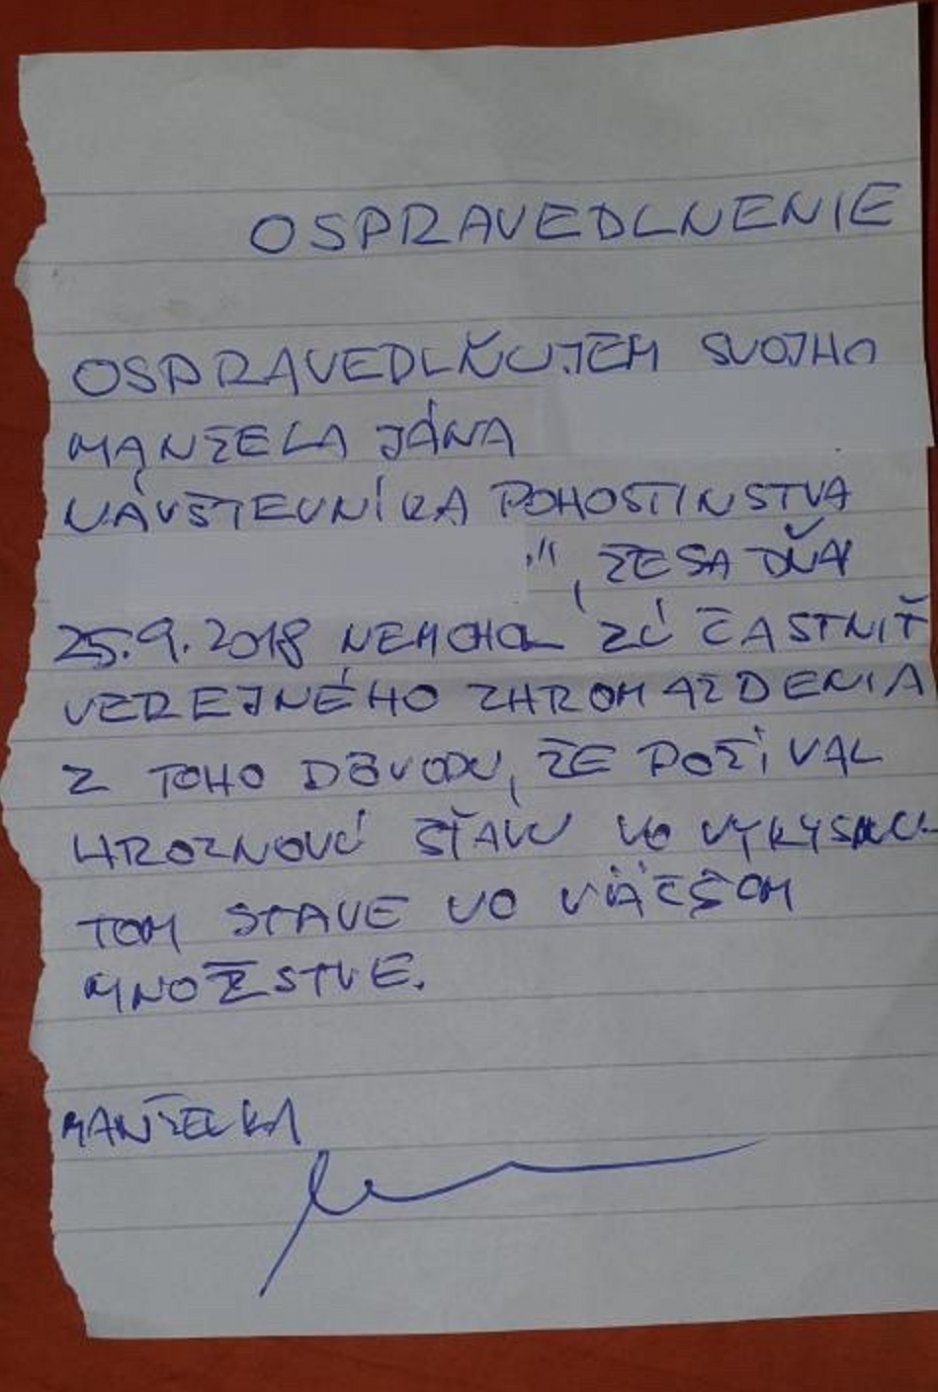 OSPRAVEDLNENIE
OSPRAVEDLŇUJEM SVOJHO
MANŽELA JÁNA
NÁVŠTEVNÍKA POHOSTINSTVA
", ŽE SA DŇA
25.9.2018 NEMOHOL ZÚČASTNIŤ
VEREJNÉHO ZHROMAŽDENIA
Z TOHO DÔVODU, ŽE POŽÍVAL
HROZNOVÚ ŠŤAVU VO VYKYSNU-
TOM STAVE VO VÄČŠOM
MNOŽSTVE.
MANŽELKA